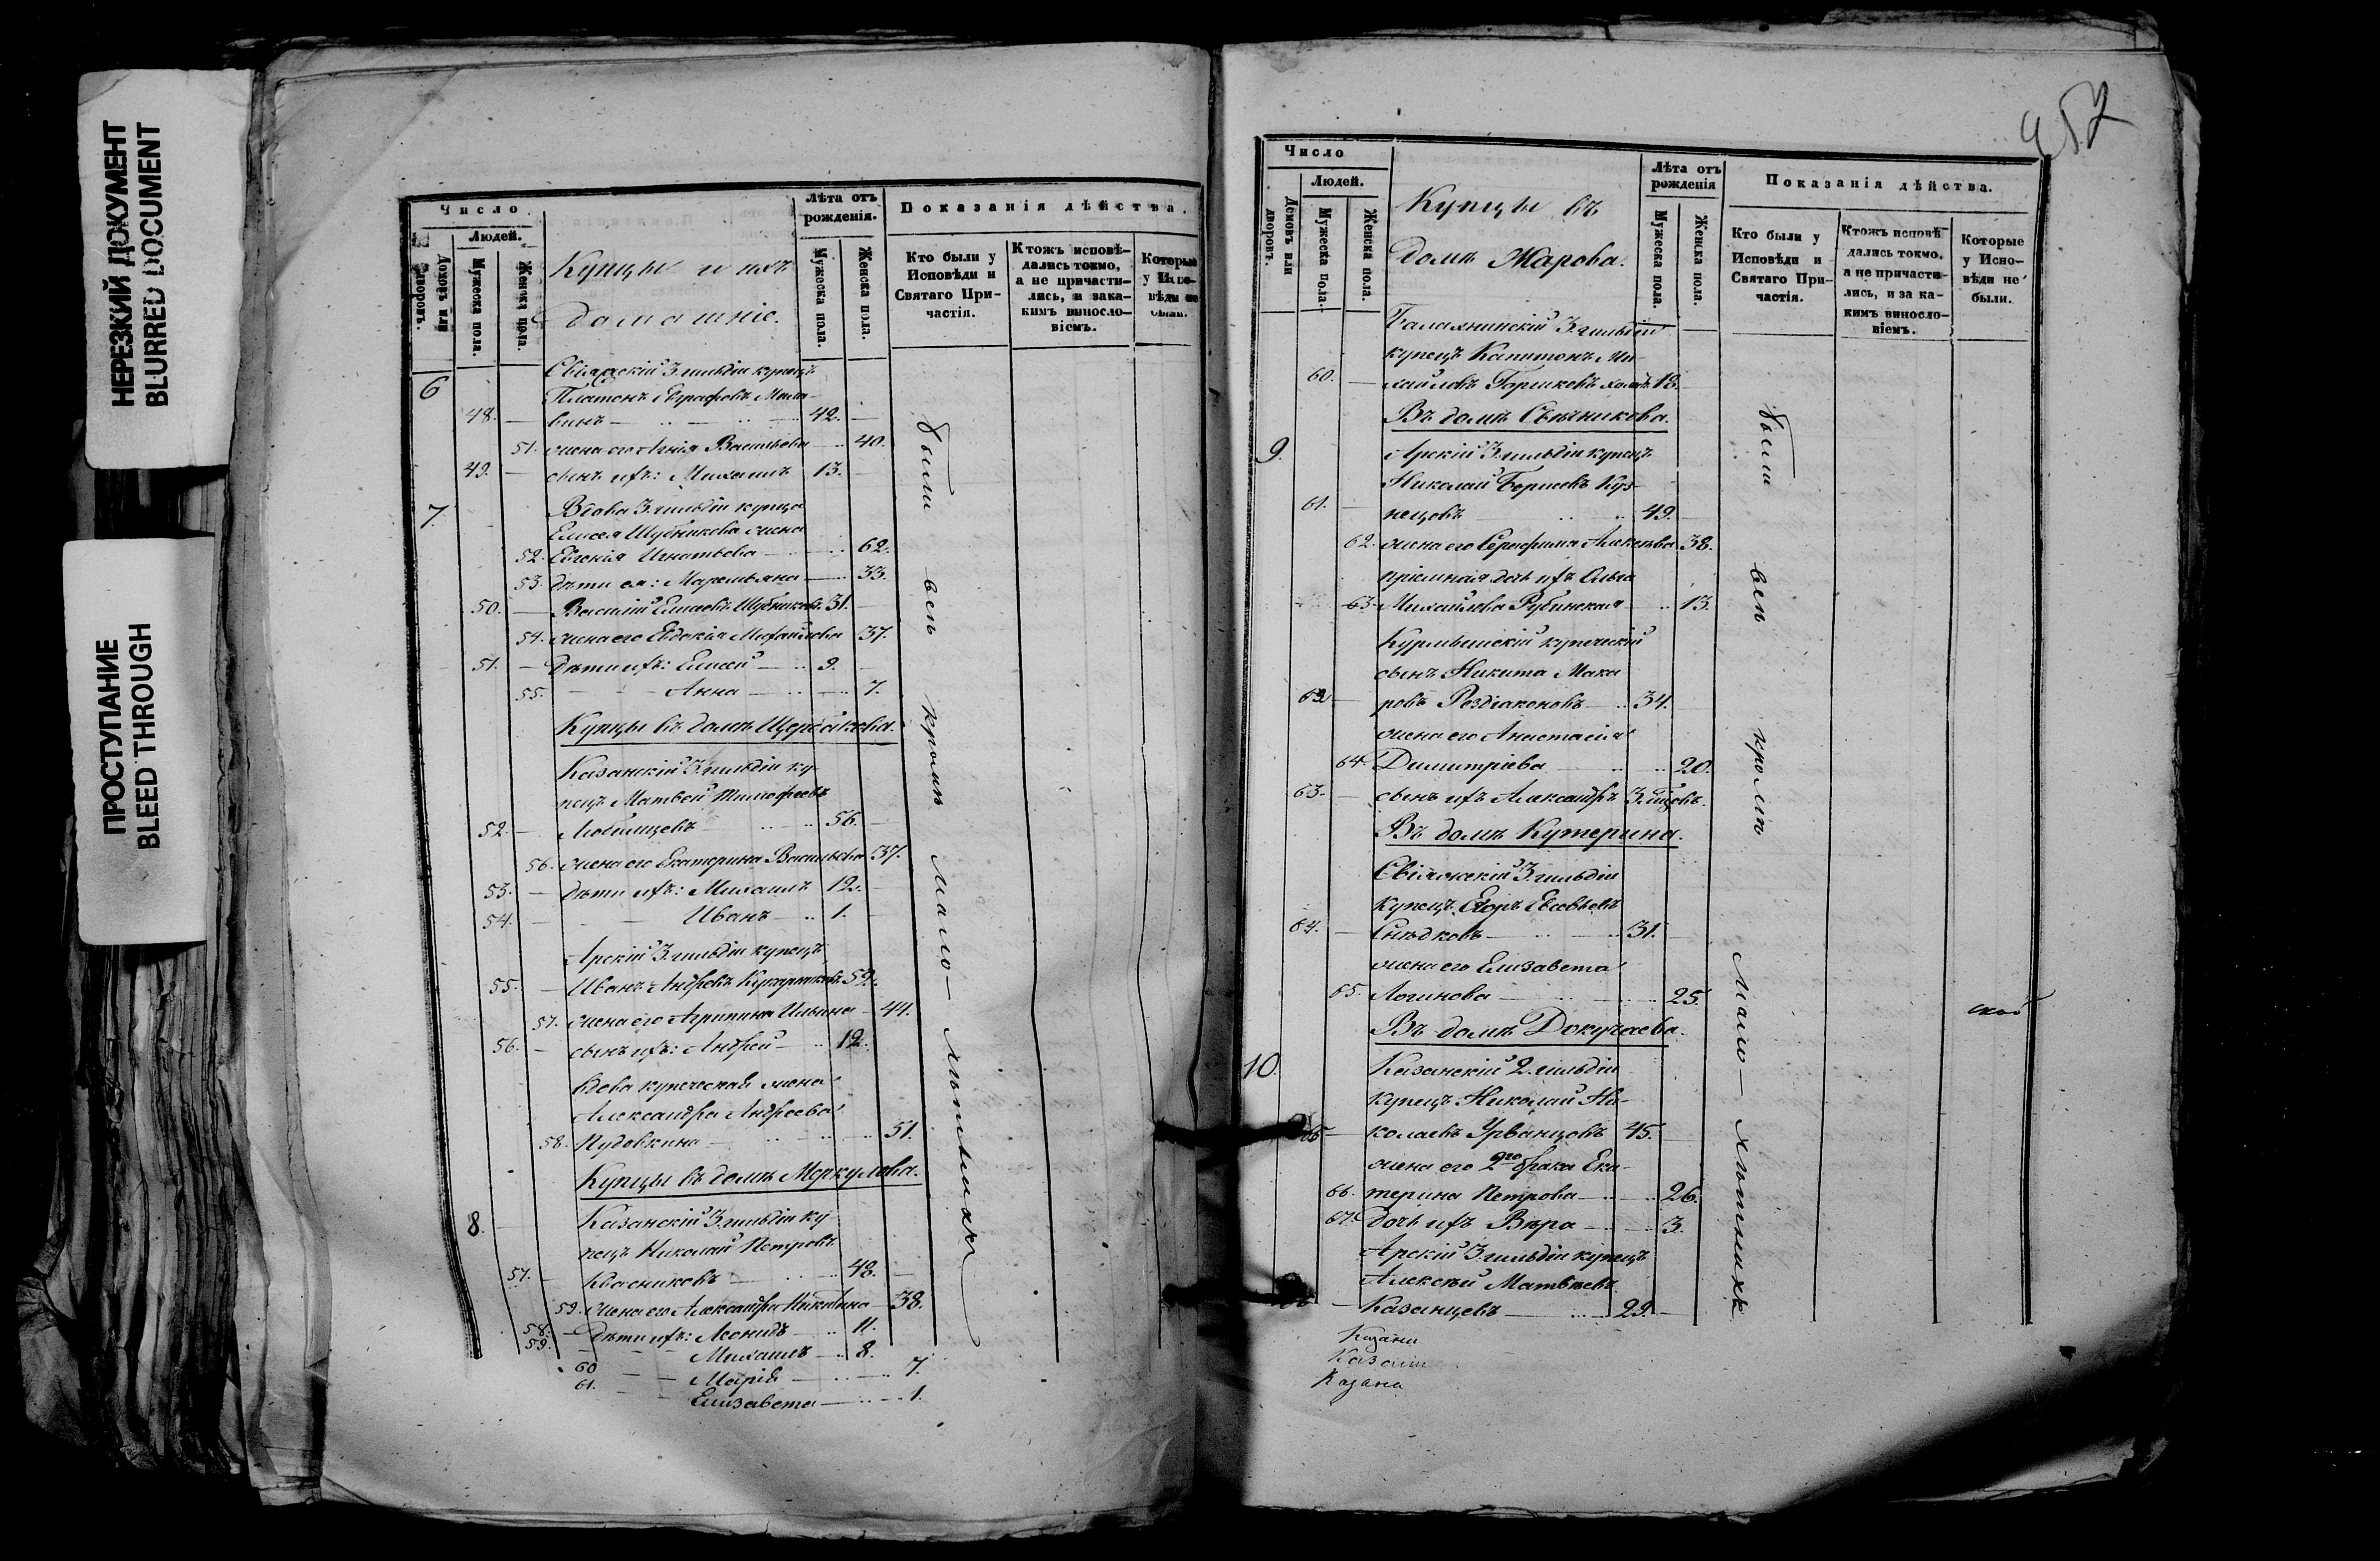 НЕРЕЗКИЙ ДОКУМЕНТ
BLURRED DOCUMENT
ПРОСТУПАНИЕ
BLEED THROUGH
Число
Людей.
Домовъ или дворовъ.
Мужеска пола.
Женска пола.
Купцы и ихъ
домашніе.
Лѣта отъ
рожденія.
Мужеска пола.
Женска пола.
Показанія дѣйства.
Кто были у
Исповѣди и
Святаго При-
частія.
Ктожъ исповѣ-
дались токмо,
а не причасти-
лись, и зака-
кимъ виносло-
віемъ.
Которые
у Испо-
вѣди не
были.
Свіяжскій 3. гильдіи купецъ
6 Платонъ Евграфовъ Мило-
48. — винъ — 42. —
51. жена его Анія Васильева — 40.
49. — сынъ ихъ: Михаилъ 13. —
7. Вдова 3. гильдіи купца
Елисея Шубникова жена
52. Евгенія Игнатьева — 62.
53. дѣти ея: Маремьяна — 33.
50. — Василій Елисеевъ Шубниковъ 31. —
54. жена его Евдокія Михайлова 37.
51. — Дѣти ихъ: Елисей — 9. —
55. — Анна — 7.
Купцы въ домѣ Щербакова.
Казанскій 3. гильдіи ку-
пецъ Матвей Тимофеевъ
52. — Любимцевъ 56. —
56. жена его Екатерина Васильева 37.
53. — дѣти ихъ: Михаилъ 12. —
54. — Иванъ — 1. —
Арскій 3. гильдіи купецъ
55. — Иванъ Андреевъ 59.
57. жена его Агрипина Ильина — 44.
56. — сынъ ихъ: Андрей — 12.
Вдова купеческая жена
Александра Андреева
58. Пудовкина — 51.
Купцы въ домѣ Меркулова.
8. Казанскій 3. гильдіи ку-
пецъ Николай Петровъ
57. — Квасниковъ — 48. —
59. жена его Александра Никитина — 38.
58. — Дѣти ихъ: Леонидъ 11.
59. — Михаилъ 8.
60 — Марія — 7.
61. — Елизавета — 1.
были всѣ кромѣ мало-лѣтнихъ
457
Число
Людей.
Домовъ или дворовъ.
Мужеска пола.
Женска пола.
Купцы въ
домѣ Жарова.
Лѣта отъ
рожденія
Мужеска пола.
Женска пола.
Показанія дѣйства.
Кто были у
Исповѣди и
Святаго При-
частія.
Ктожъ исповѣ-
дались токмо,
а не причасти-
лись, и за ка-
кимъ виносло-
віемъ.
Которые
у Испо-
вѣди не
были.
Балахнинскій 3. гильдіи
купецъ Капитонъ Ми-
60. — хайловъ Горшковъ
Въ домѣ Свѣчникова.
9. Арскій 3. гильдіи купецъ
Николай Борисовъ Куз-
61. — нецовъ — 49. —
62. жена его Серафима Алексѣева 38.
пріемная дочь ихъ Ольга
63. Михайлова Рубинская — 13.
Курмышскій купеческій
сынъ Никита Мака
62 — ровъ Роздіаконовъ — 34.
жена его Анастасія
64. Димитріева — 20.
63. — сынъ ихъ Александръ
Въ домѣ Кутерина.
Свіяжскій 3. гильдіи
купецъ Егоръ Евсевьевъ
64. — Снѣдковъ — 31. —
жена его Елизавета
65. Логинова — 25.
Въ домѣ Докучаева.
10. Казанскій 2. гильдіи
купецъ Николай Ни-
65 — колаевъ Урванцовъ 45. —
жена его 2го брака Ека-
66. терина Петрова — 26.
67. дочь ихъ Вѣра — 3.
Арскій 3. гильдіи купецъ
Алексѣй Матвѣевъ
— Казанцевъ — 29. —
были всѣ кромѣ мало-лѣтнихъ
Казани
Казани
Казани